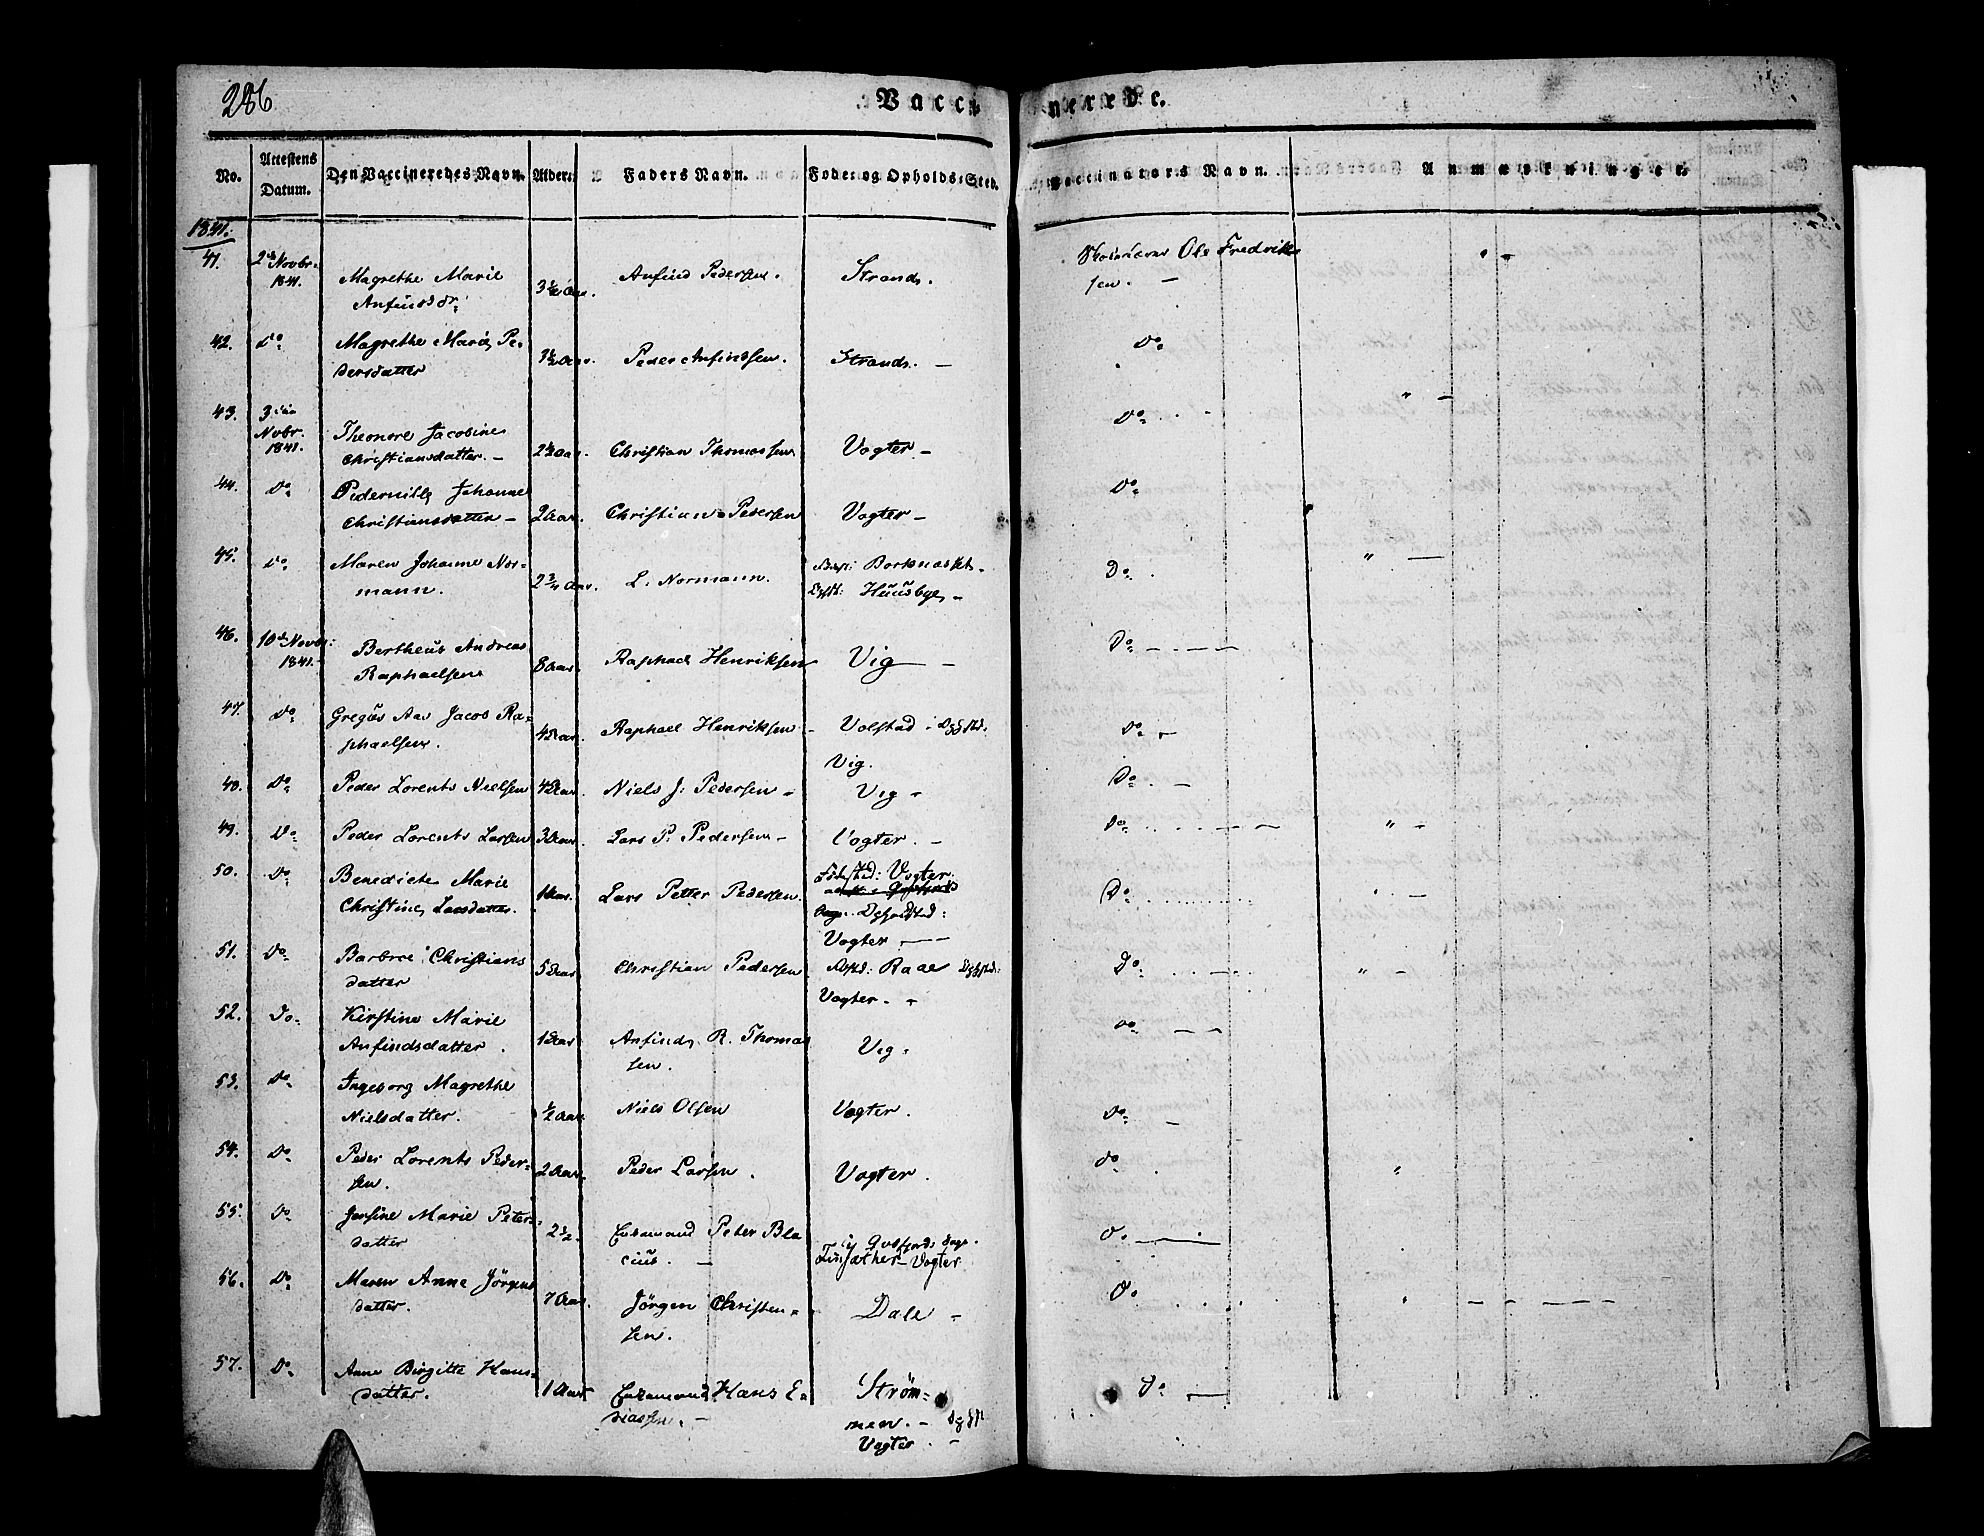 286
Vaccinerede.
No.
Attestens Datum.
Den Vaccineredes Navn.
Alder.
Faders Navn.
Føde- og Opholds-Sted.
Vaccinators Navn.
Anmærkninger.
1841.
41. 2den Novbr. 1841. Magrethe Marie Anfinsdr. 3½ Aar. Anfind Pedersen. Strand. Ole Fredrik-
sen.
42. Do Magrethe Marie Pe-
dersdatter 1½ Aar. Peder Anfindsen. Strand. Do
43. 3die Novbr. 1841. Theonore Jacobine
Christiansdatter. 2½ Aar. Christian Thomassen Vogter Do
44. Do Pedernille Johanne
Christiansdatter 2 Aar. Christian Pedersen Vogter Do
45. Do Maren Johanne Nor-
mann. 2¾ Aar. L. Normann. Borknaset.
Huusbye Do
46. 10de Novbr: 1841. Bertheus Andreas
Raphaelsen 8 Aar. Raphael Henriksen Vig Do
47. Do Jacob Ra-
phaelsen. Aar. Raphael Henriksen Volstad
Vig. Do
48. Do Peder Lorents Nielsen Aar. Niels J. Pedersen Vig Do
49. Do Peder Lorents Larsen 3 Aar. Lars P. Pedersen Vogter. Do
50. Do Benedicte Marie
Christine Larsdatter. 1 Aar. Lars Petter Pedersen. Vogter.
Vogter Do
51. Do Barbroe Christians
datter 5 Aar. Christian Pedersen Raae
Vogter. Do
52. Do Kirstine Marie
Anfindsdatter. 1 Aar Anfind R. Thomas
sen. Vig. Do
53. Do Ingeborg Magrethe
Nielsdatter. ½ Aar Niels Olsen Vogter. Do
54. Do Peder Lorents Peder-
sen. 2 Aar. Peder Larsen. Vogter. Do
55. Do Marie Peter-
datter 2½. Peter Bla
cius. Gulsfjord
Vogter Do
56. Do Maren Anne Jørgens
datter. 7 Aar. Jörgen Christen-
sen. Dale Do
57. Do Anne Birgitte Hans-
datter. 1 Aar Hans E-
liassen. Strøm-
men.
Vogter Do